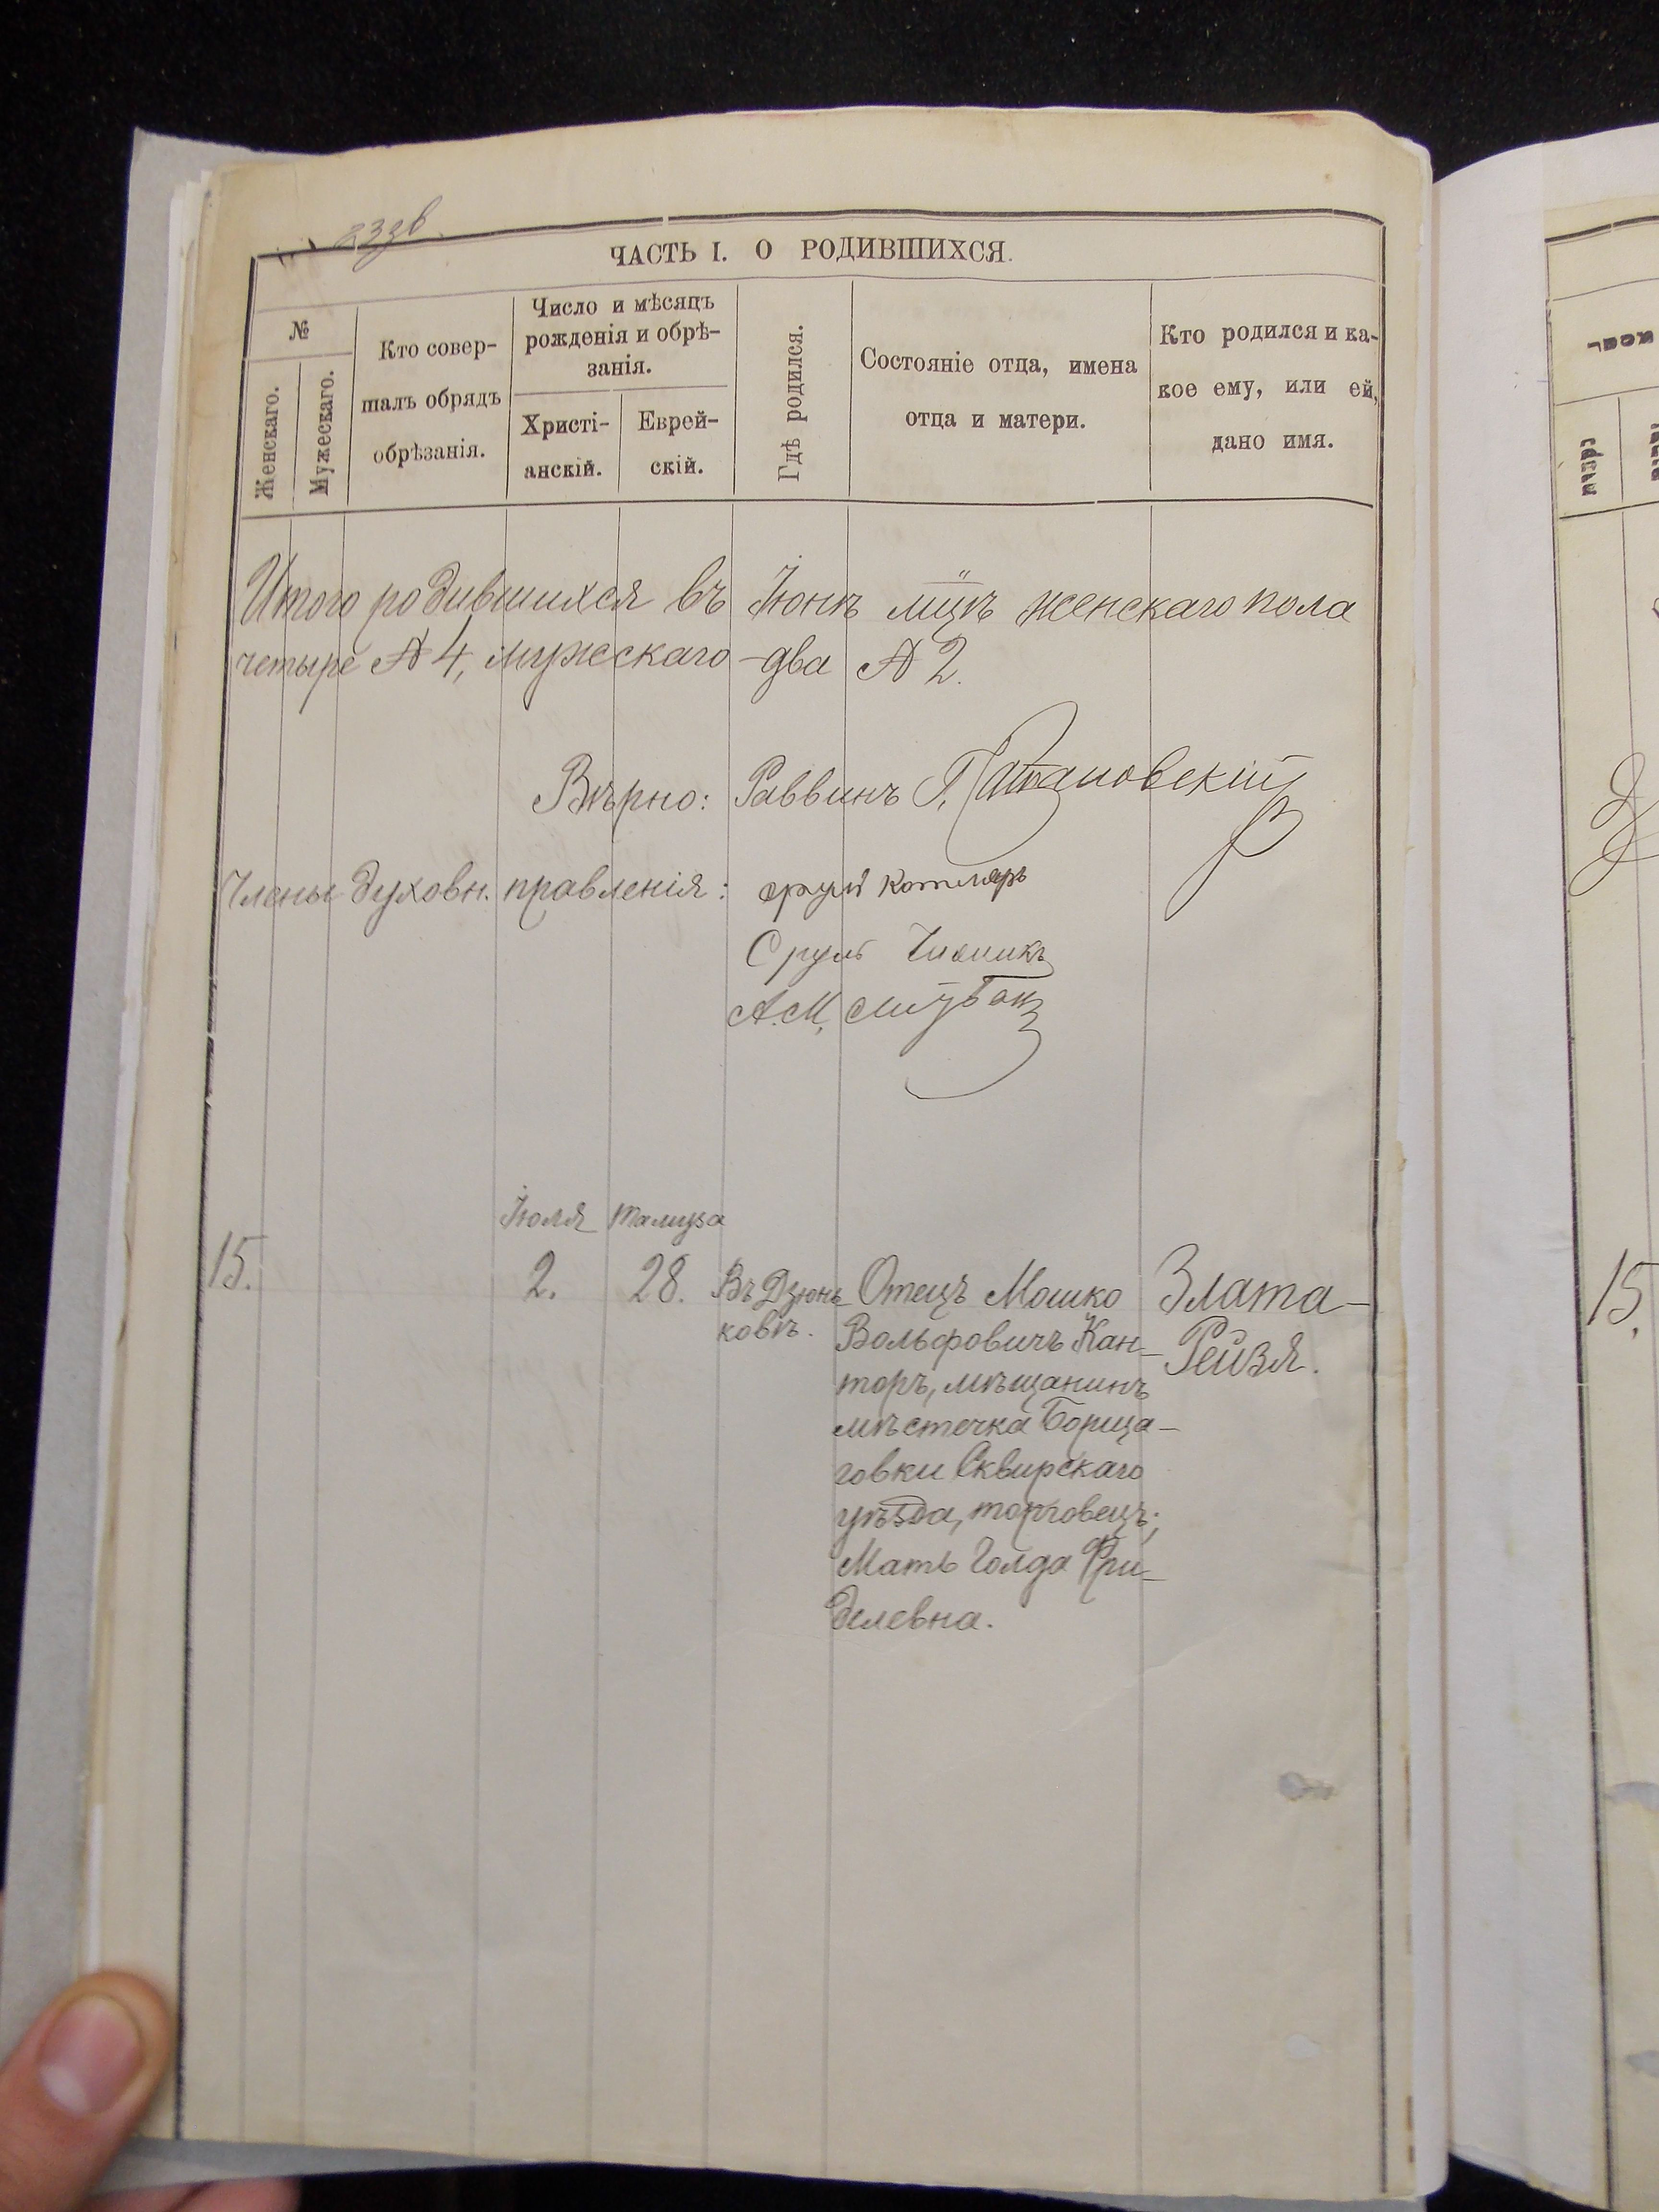 233в
ЧАСТЬ I. О РОДИВШИХСЯ.
№
Женскаго.
Мужескаго.
Кто совер-
шалъ обрядъ
обрѣзанія.
Число и мѣсяцъ
рожденія и обрѣ-
занія.
Христі-
анскій.
Еврей-
скій.
Гдѣ родился.
Состояніе отца, имена
отца и матери.
Кто родился и ка-
кое ему, или ей,
дано имя.
Итого родившихся въ Іюнѣ мцѣ женскаго пола
четыре № 4, мужескаго - два № 2.
Вѣрно: Раввинъ Г.
Члены духовн. правленія: Сруль Котляръ
Сруль
А.М.
Іюля Тамуза
15. 2. 28. Въ Дзюнь- Отецъ Мошко Злата-
ковѣ. Вольфовичъ Кан- Рейзя.
торъ, мѣщанинъ
мѣстечка Борща-
говки Сквирскаго
уѣзда, торговецъ;
Мать Голда Фри-
делевна.
15.